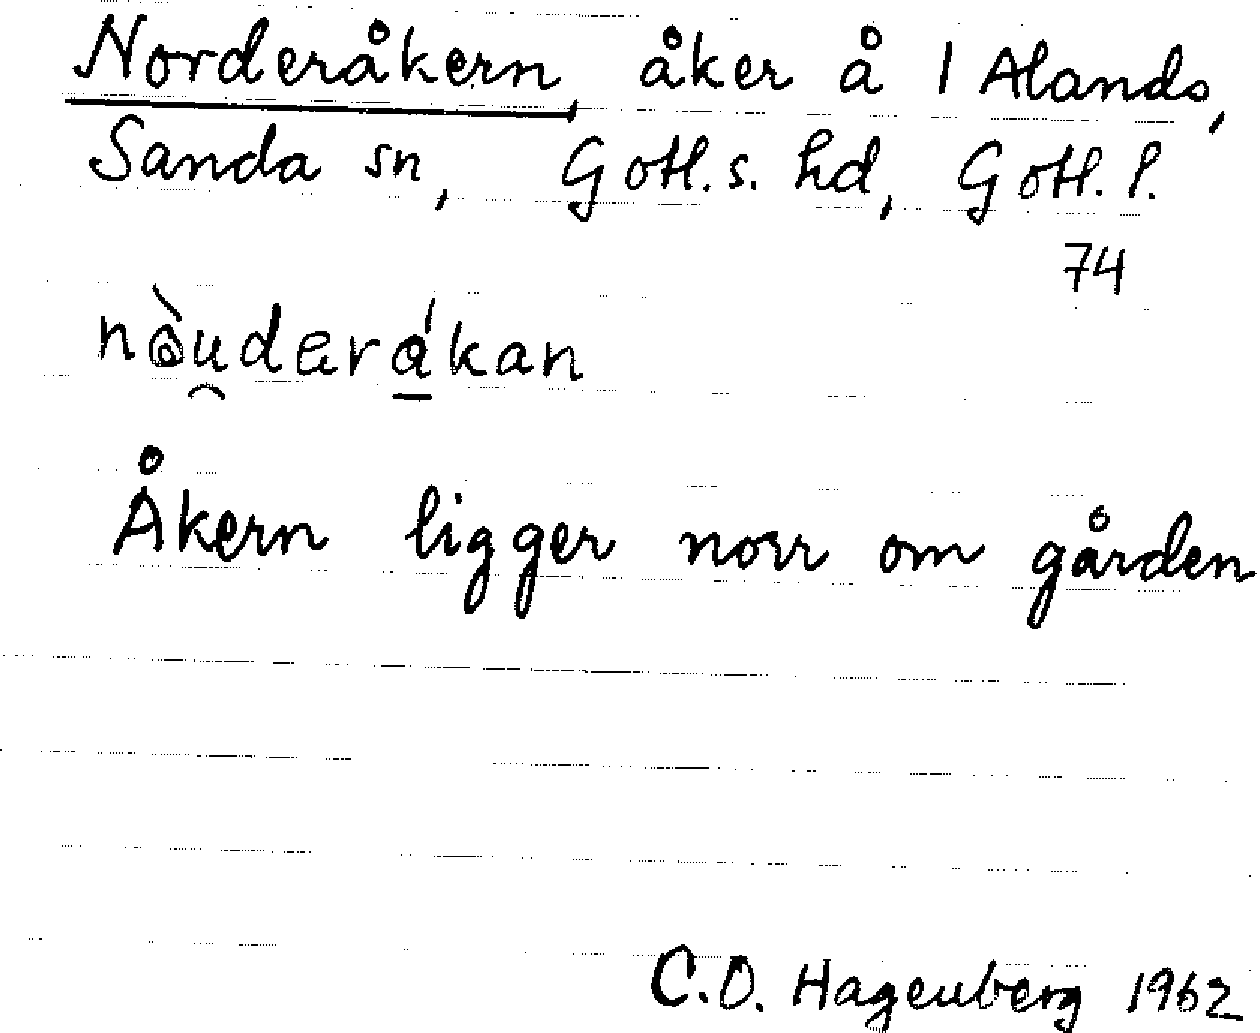 Norderåkern, åker å 1 Alands,
Sanda sn, Gotl. s. hd, Gotl. l.
74
nòu̯derá̱kan
Åkern ligger norr om gården
C.O. Hagenberg 1962